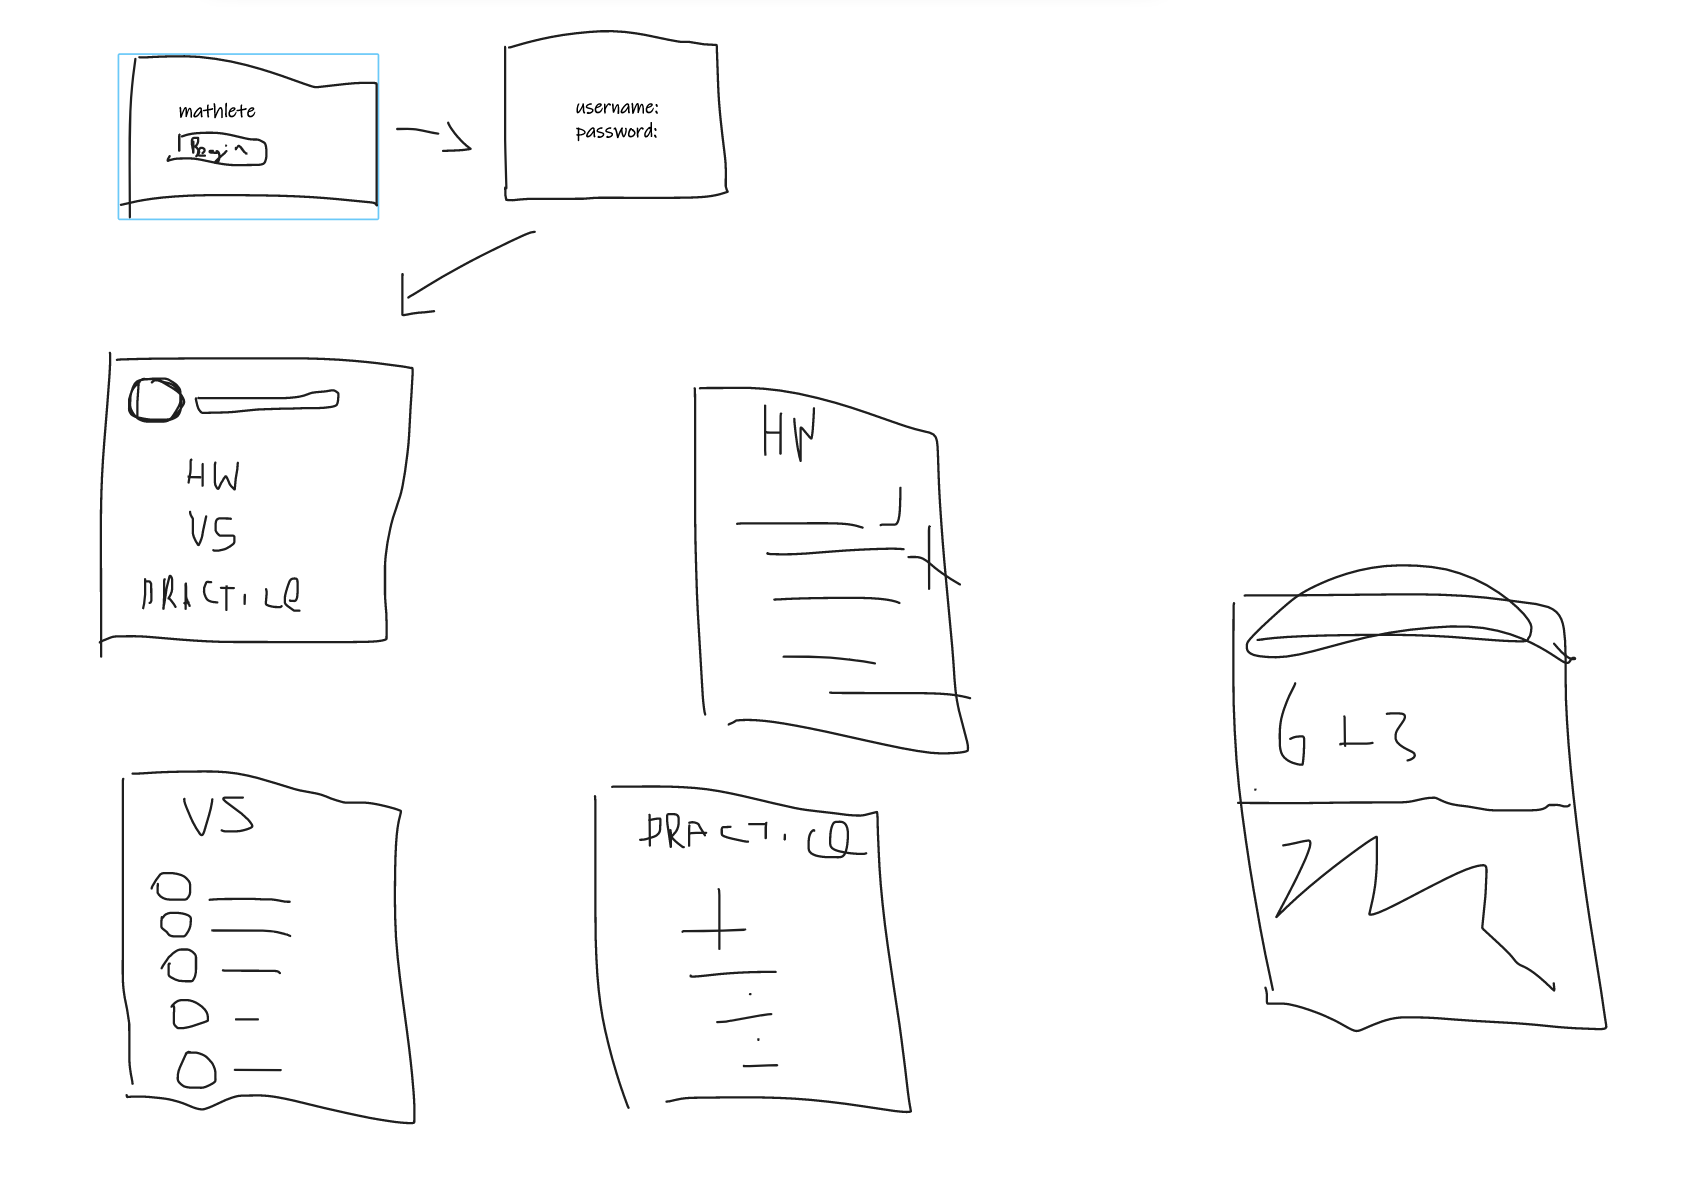 mathlete
Begin
username:
password:
HW
VS
PRACTICE
HW
VS
PRACTICE
+
-
÷
-
6 + 3